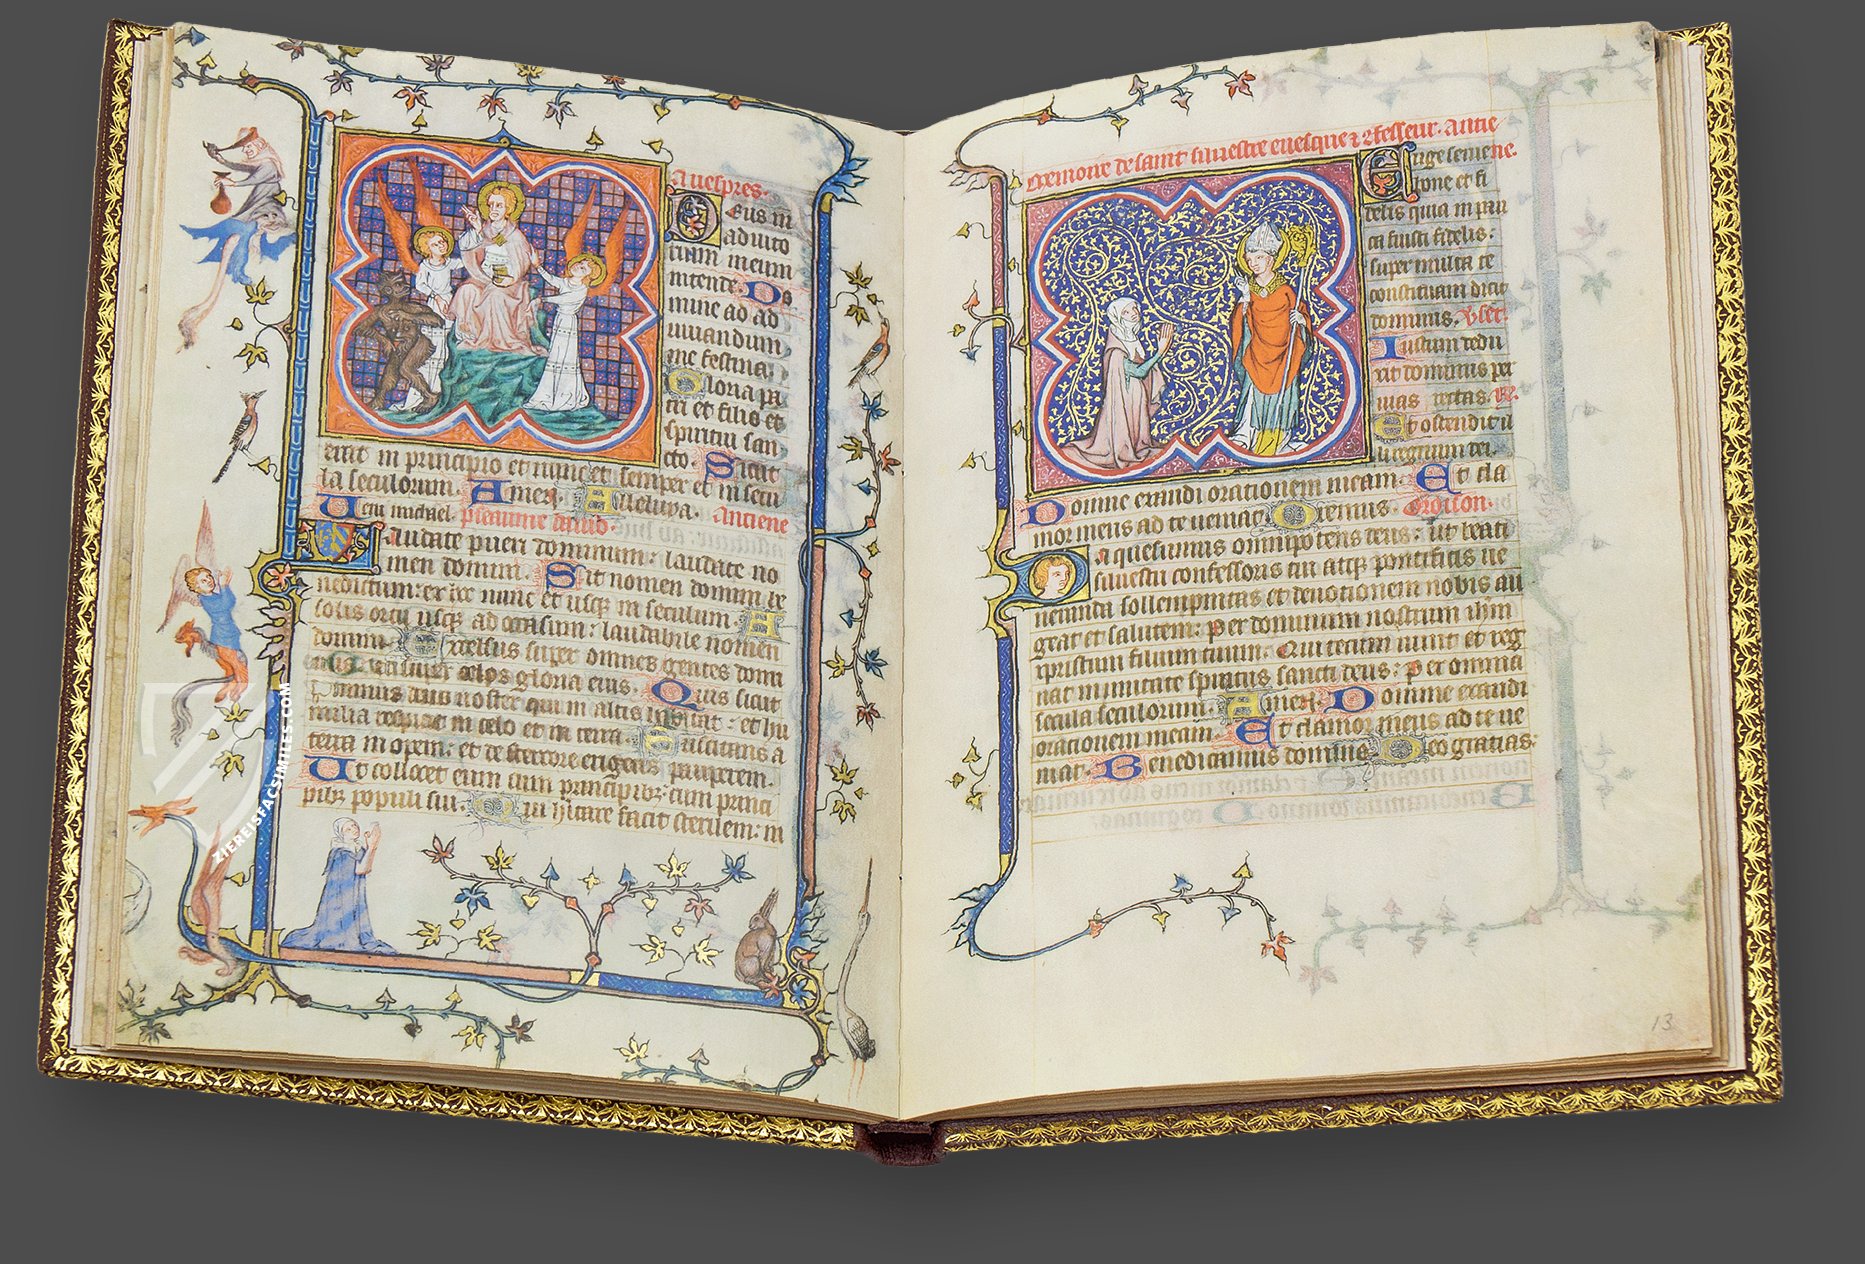 A uespres.
Deus in
adiuto
rium meum
intende. Do
mine ad ad
iuuandum
me festina.
Gloria pa
tri et filio et
spiritui san
cto. Sicut
erat in principio et nunc et semper et in secu
la seculorum. Amen. Alleluya. Antiene
Ueni michael. pseaume dauid.
Laudate pueri dominum: laudate no
men domini. Sit nomen domini be
nedictum: ex hoc nunc et usq in seculum. A
solis ortu usq ad occasum: laudabile nomen
domini. Excelsus super omnes gentes domi
nus: et super celos gloria eius. Quis sicut
dominus deus noster qui in altis habitat: et hu
milia respicit in celo et in terra. Suscitans a
terra inopem: et de stercore erigens pauperem.
Ut collocet eum cum principibz: cum princi
pibz populi sui. Qui habitare facit sterilem: in
Memoire de saint siluestre euesque et confesseur. Antie
Euge serue ne.
bone et fi
delis quia in pau
ca fuisti fidelis:
super multa te
constituam dicit
dominus. Vser.
Iustum dedu
xit dominus per
uias rectas. R.
Et ostendit il
li regnum dei.
Domine exaudi orationem meam. Et cla
mor meus ad te ueniat. Oremus. Oroison.
Da quesumus omnipotens deus: ut beati
siluestri confessoris tui atq pontificis ue
neranda sollempnitas et deuotionem nobis au
geat et salutem: Per dominum nostrum ihm
xpristum filium tuum. Qui tecum uiuit et reg
nat in unitate spiritus sancti deus: Per omnia
secula seculorum. Amen. Domine exaudi
orationem meam. Et clamor meus ad te ue
niat. Benedicamus domino. Deo gratias.
13
ZIEREISFACSIMILES.COM